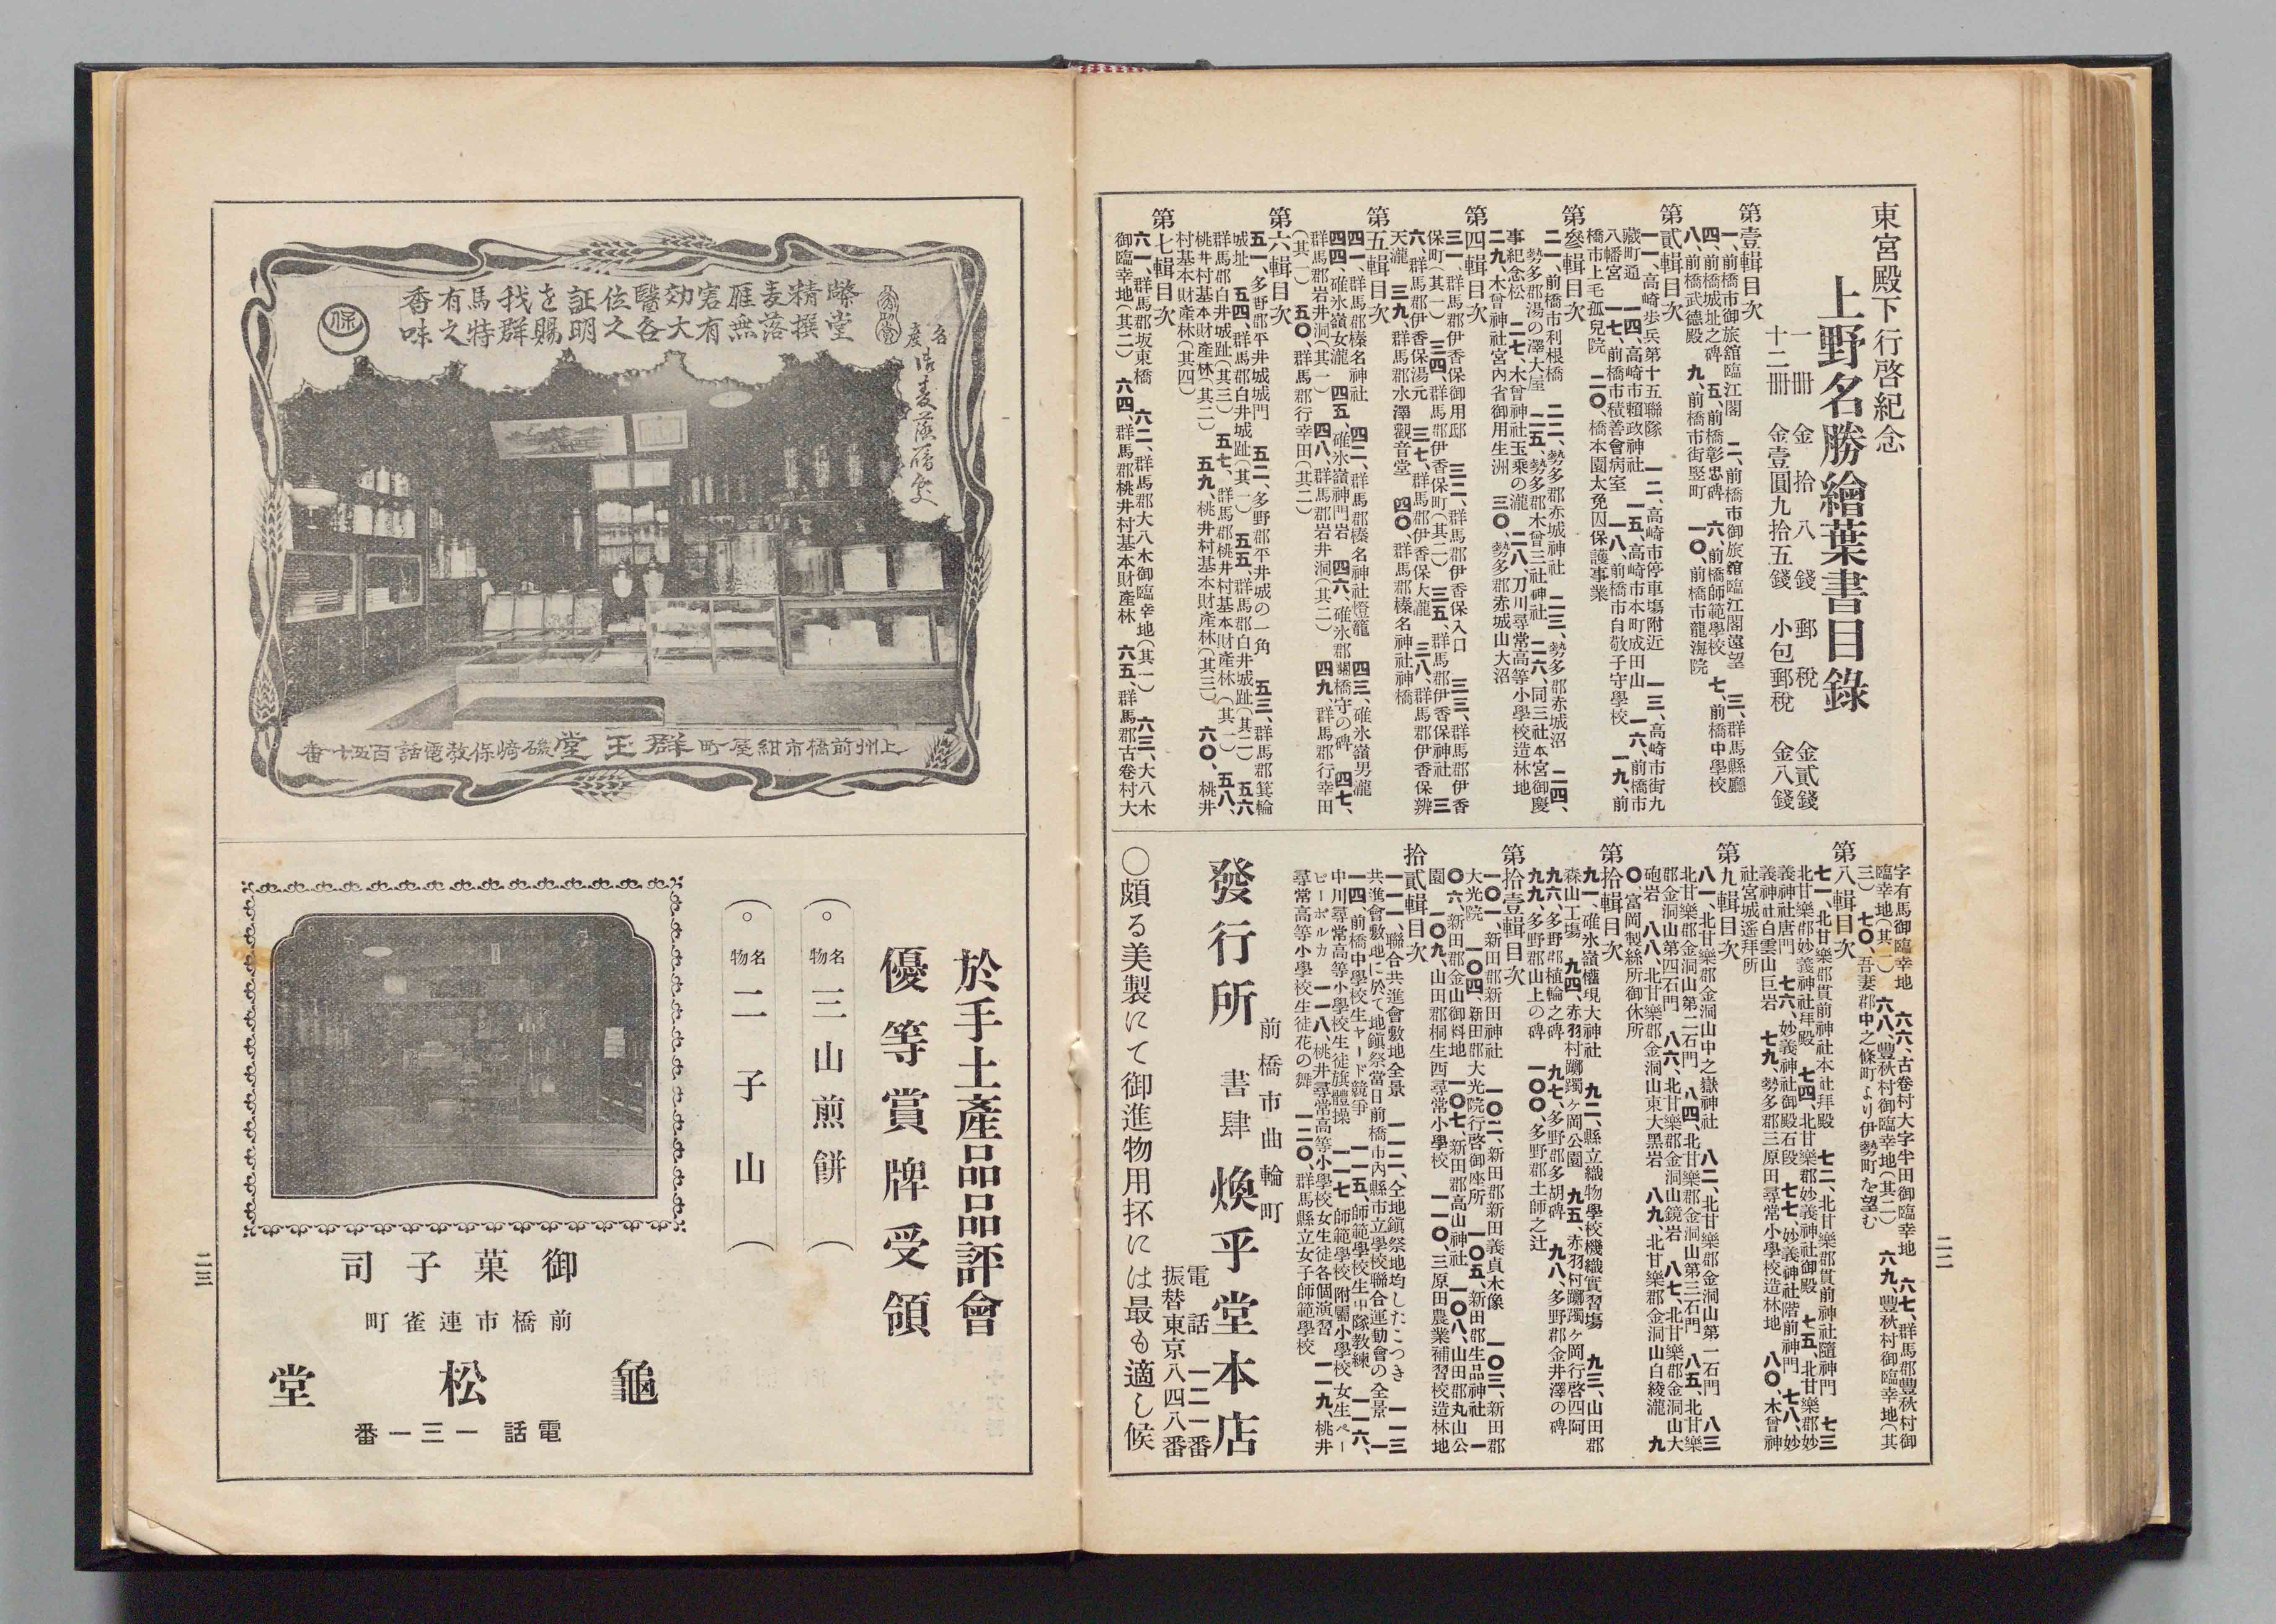 東宮殿下行啓紀念
上野名勝繪葉書目錄
一冊 金拾八錢 郵稅 金貳錢
十二冊 金壹圓九拾五錢 小包郵稅 金八錢
第壹輯目次
一、前橋市御旅舘臨江閣 二、前橋市御旅舘臨江閣遠望 三、群馬縣廳
四、前橋城址之碑 五、前橋彰忠碑 六、前橋師範學校 七、前橋中學校
八、前橋武德殿 九、前橋市街竪町 一〇、前橋市龍海院
第貳輯目次
一一、高崎步兵第十五聯隊 一二、高崎市停車塲附近 一三、高崎市街九
藏町通 一四、高崎市賴政神社 一五、高崎市本町成田山 一六、前橋市
八幡宮 一七、前橋市積善會病室 一八、前橋市自敬子守學校 一九、前
橋市上毛孤兒院 二〇、橋本園太免囚保護事業
第參輯目次
二一、前橋市利根橋 二二、勢多郡赤城神社 二三、勢多郡赤城沼 二四、
勢多郡湯の澤大屋 二五、勢多郡木曾三社神社 二六、同三社本宮御慶
事紀念松 二七、木曾神社玉乘の瀧 二八、刀川尋常高等小學校造林地
二九、木曾神社宮內省御用生洲 三〇、勢多郡赤城山大沼
第四輯目次
三一、群馬郡伊香保御用邸 三二、群馬郡伊香保入口 三三、群馬郡伊香
保町(其一) 三四、群馬郡伊香保町(其二) 三五、群馬郡伊香保神社 三
六、群馬郡伊香保湯元 三七、群馬郡伊香保大瀧 三八、群馬郡伊香保辨
天瀧 三九、群馬郡水澤觀音堂 四〇、群馬郡榛名神社神橋
第五輯目次
四一、群馬郡榛名神社 四二、群馬郡榛名神社燈籠 四三、碓氷嶺男瀧
四四、碓氷嶺女瀧 四五、碓氷嶺神門岩 四六、碓氷郡關橋守の碑 四七、
群馬郡岩井洞(其一) 四八、群馬郡岩井洞(其二) 四九、群馬郡行幸田
(其一) 五〇、群馬郡行幸田(其二)
第六輯目次
五一、多野郡平井城城門 五二、多野郡平井城の一角 五三、群馬郡箕輪
城址 五四、群馬郡白井城趾(其一) 五五、群馬郡白井城趾(其二) 五六
群馬郡白井城趾(其三) 五七、群馬郡桃井村基本財產林(其一) 五八、
桃井村基本財產林(其二) 五九、桃井村基本財產林(其三) 六〇、桃井
村基本財產林(其四)
第七輯目次
六一、群馬郡坂東橋 六二、群馬郡大八木御臨幸地(其一) 六三、大八木
御臨幸地(其二) 六四、群馬郡桃井村基本財產林 六五、群馬郡古卷村大
字有馬御臨幸地 六六、古卷村大字半田御臨幸地 六七、群馬郡豐秋村御
臨幸地(其一) 六八、豐秋村御臨幸地(其二) 六九、豐秋村御臨幸地(其
三) 七〇、吾妻郡中之條町より伊勢町を望む
第八輯目次
七一、北甘樂郡貫前神社本社拜殿 七二、北甘樂郡貫前神社隨神門 七三
北甘樂郡妙義神社拜殿 七四、北甘樂郡妙義神社御殿 七五、北甘樂郡妙
義神社唐門 七六、妙義神社御殿石段 七七、妙義神社階前神門 七八、妙
義神社白雲山巨岩 七九、勢多郡三原田尋常小學校造林地 八〇、木曾神
社宮城遙拜所
第九輯目次
八一、北甘樂郡金洞山中之嶽神社 八二、北甘樂郡金洞山第一石門 八三
北甘樂郡金洞山第二石門 八四、北甘樂郡金洞山第三石門 八五、北甘樂
郡金洞山第四石門 八六、北甘樂郡金洞山鏡岩 八七、北甘樂郡金洞山大
砲岩 八八、北甘樂郡金洞山東大黑岩 八九、北甘樂郡金洞山白綾瀧 九
〇、富岡製絲所御休所
第拾輯目次
九一、碓氷嶺權現大神社 九二、縣立織物學校機織實習塲 九三、山田郡
森山工塲 九四、赤羽村躑躅ヶ岡公園 九五、赤羽村躑躅ヶ岡行啓四阿
九六、多野郡植輪之碑 九七、多野郡多胡碑 九八、多野郡金井澤の碑
九九、多野郡山上の碑 一〇〇、多野郡土師之辻
第拾壹輯目次
一〇一、新田郡新田神社 一〇二、新田郡新田義貞木像 一〇三、新田郡
大光院 一〇四、新田郡大光院行啓御座所 一〇五、新田郡生品神社 一
〇六、新田郡金山御料地 一〇七、新田郡高山神社 一〇八、山田郡丸山公
園 一〇九、山田郡桐生西尋常小學校 一一〇、三原田農業補習校造林地
拾貳輯目次
一一一、聯合共進會敷地全景 一一二、仝地鎭祭地均したこつき 一一三
共進會敷地に於て地鎭祭當日前橋市內縣市立學校聯合運動會の全景 一
一四、前橋中學校生ヤード競爭 一一五、師範學校生中隊教練 一一六、
中川尋常高等小學校生徒旗體操 一一七、師範學校附屬小學校女生ペー
ピーポルカ 一一八、桃井尋常高等小學校女生徒各個演習 一一九、桃井
尋常高等小學校生徒花の舞 一二〇、群馬縣立女子師範學校
前橋市曲輪町
發行所 書肆 煥乎堂本店
電話 一二一番
振替東京八四八番
〇頗る美製にて御進物用抔には最も適し候
二二
名產
弊堂精撰麦落雁無害有効大醫各位之証明を賜我群馬特有之香味
保
上州前橋市紺屋町 群玉堂 磯﨑保敎 電話百五十番
於手土產品品評會
優等賞牌受領
名物 三山煎餅
名物 二子山
御菓子司
前橋市連雀町
龜松堂
電話一三一番
二三